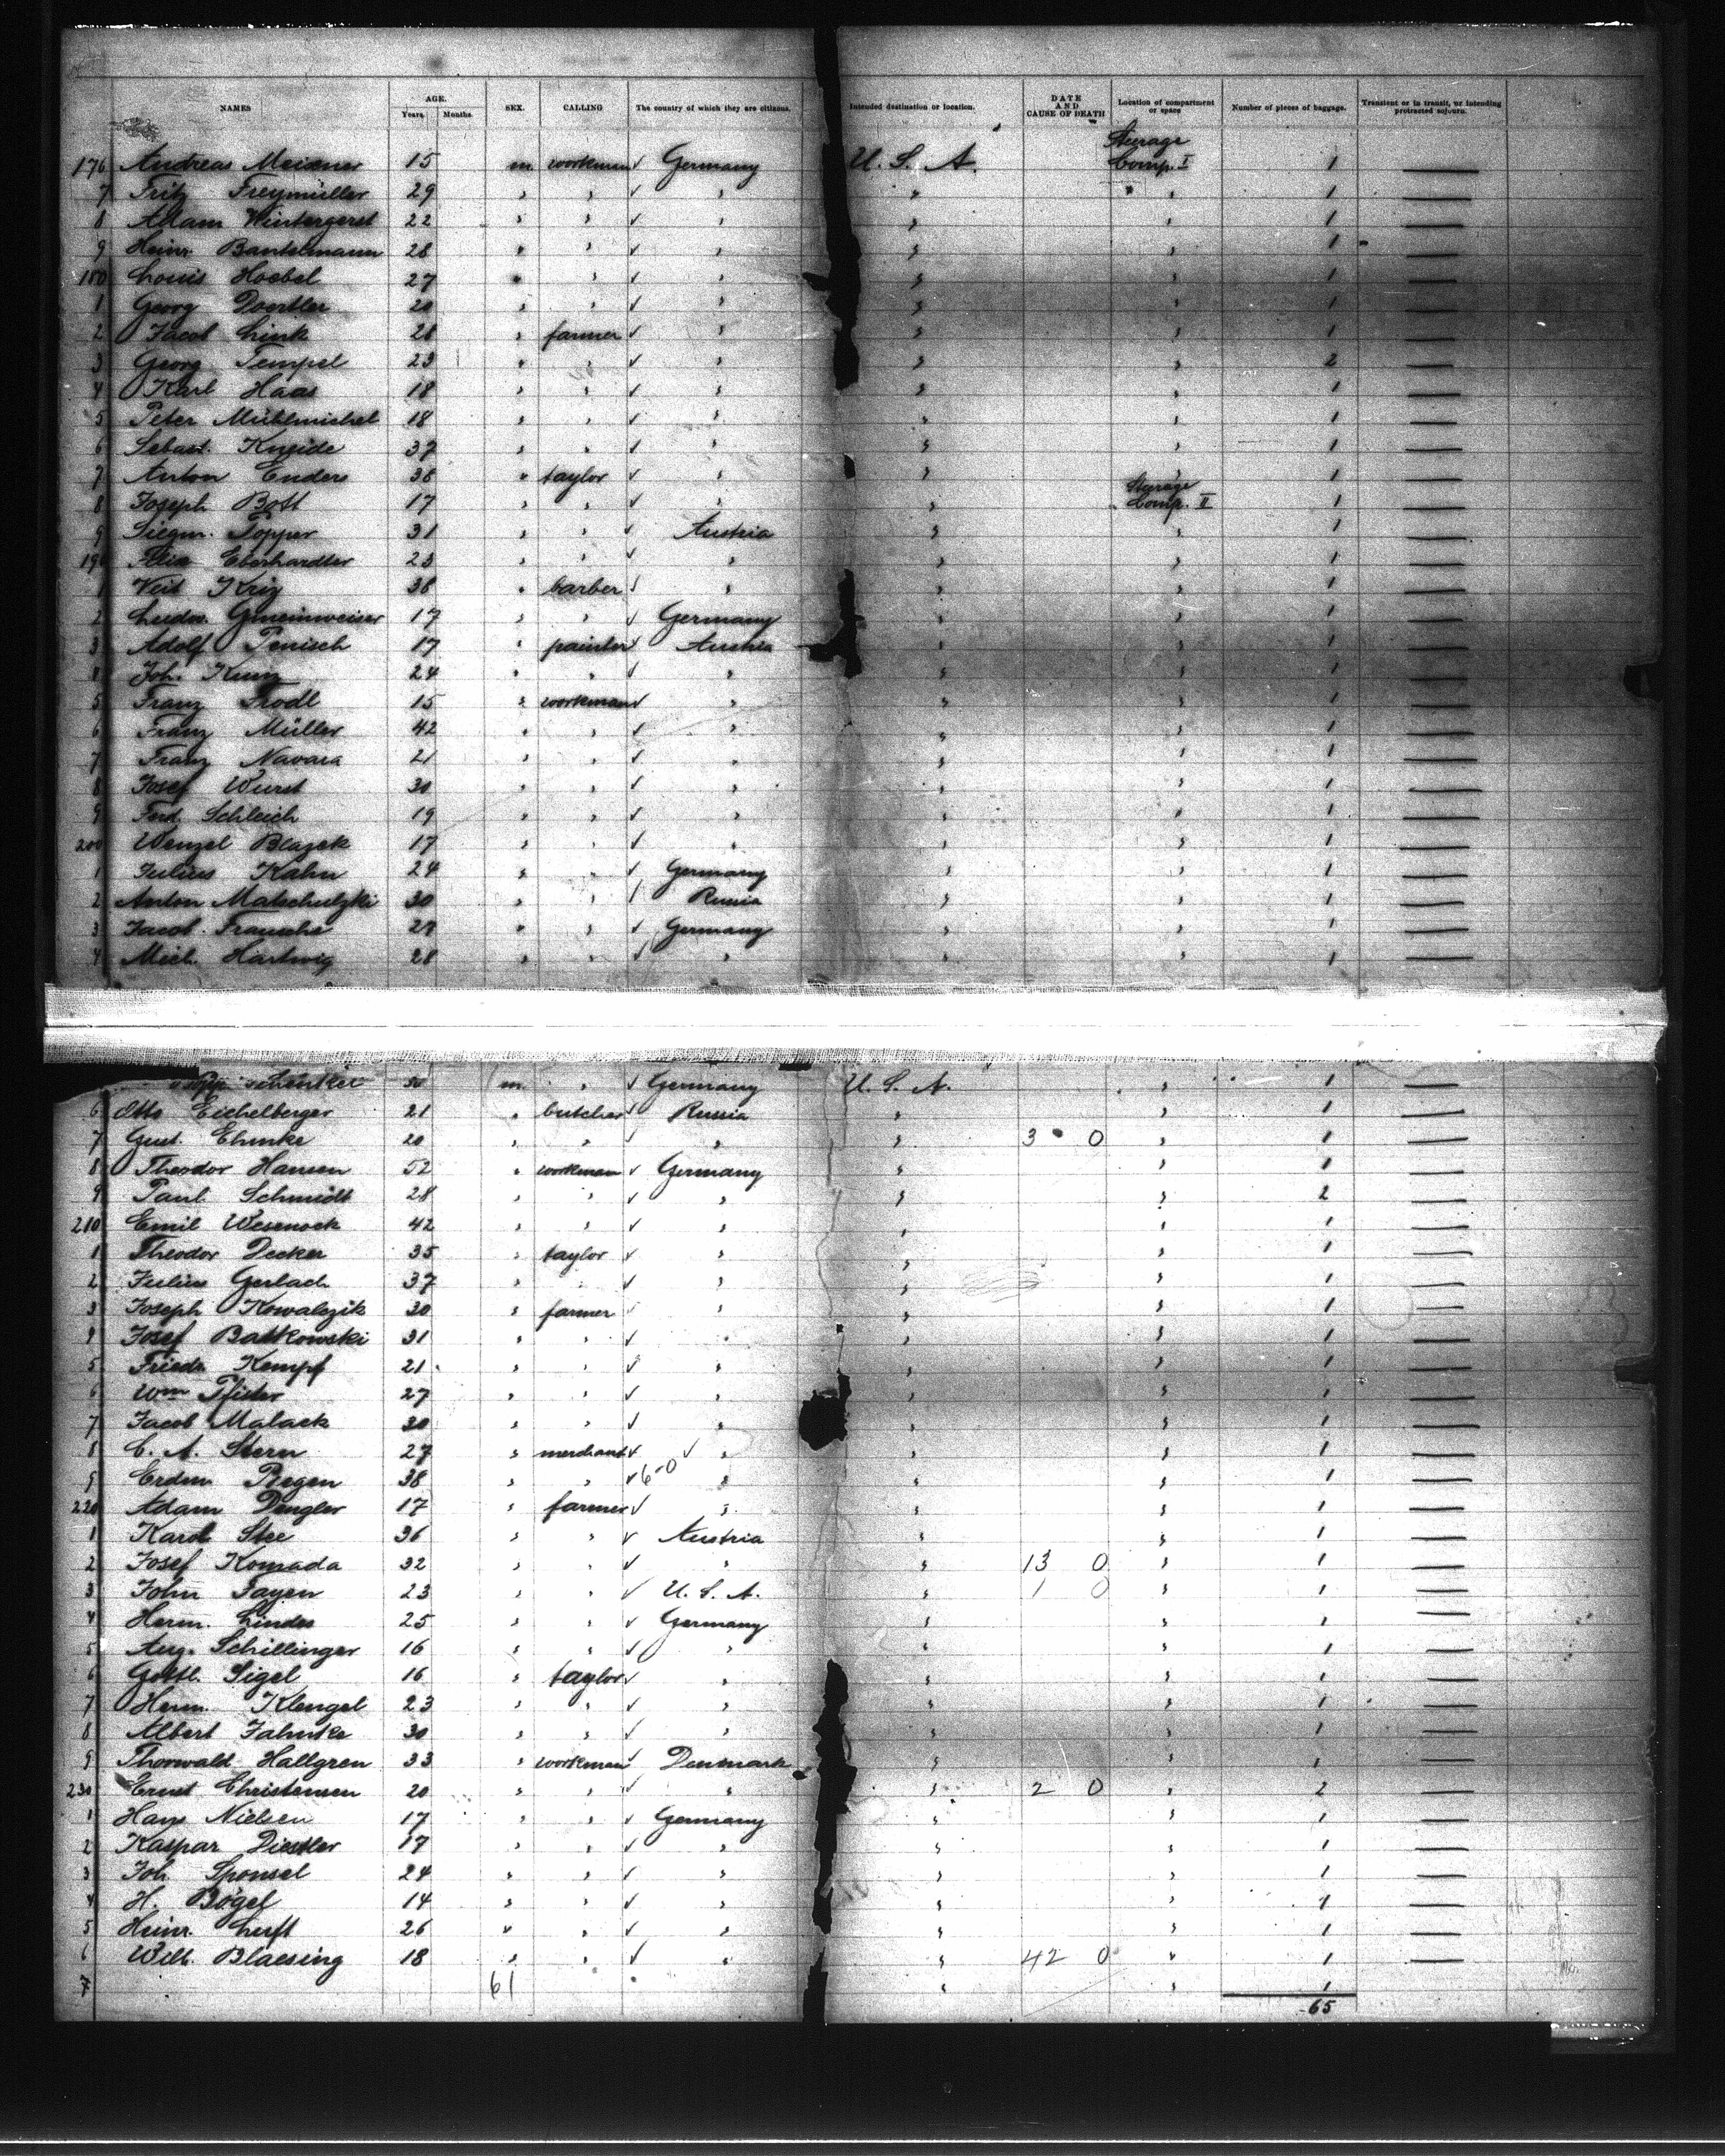 NAMES AGE. Years. Months. SEX. CALLING The country of which they are citizens. Intended destination or location. DATE AND CAUSE OF DEATH Location of compartment or space Number of pieces of baggage. Transient or in transit, or intending protracted sojourn.
Steerage
176 Andreas Meixner 15 m. workman ✓ Germany U. S. A. Comp. I 1 —
7 Fritz Freymüller 29 " " ✓ " " " 1 —
8 Adam Wintergerst 22 " " ✓ " " " 1 —
9 Heinr. Bantelmann 28 " " ✓ " " " 1 —
180 Louis Hoebel 27 " " ✓ " " " 1 —
1 Georg 20 " " ✓ " " " 1 —
2 Jacob Link 28 " farmer ✓ " " " 1 —
3 Georg Tempel 23 " " ✓ " " " 2 —
4 Karl Haas 18 " " ✓ " " " 1 —
5 Peter Mühlmichel 18 " " ✓ " " " 1 —
6 Sebast. Kneide 37 " " ✓ " " " 1 —
7 Anton Enders 38 " taylor ✓ " " " 1 —
Steerage
8 Joseph Bott 17 " " ✓ " " Comp. II 1 —
9 Siegm. Popper 31 " " ✓ Austria " " 1 —
190 Felix Eberhardter 23 " " ✓ " " " 1 —
1 Veit Kriz 38 " barber ✓ " " " 1 —
2 Ludw. Gmeinweiser 17 " " ✓ Germany " " 1 —
3 Adolf Penisch 17 " painter ✓ Austria " " 1 —
4 Joh. Kunz 24 " " ✓ " " " 1 —
5 Franz Trodl 15 " workman ✓ " " " 1 —
6 Franz Müller 42 " " ✓ " " " 1 —
7 Franz Navara 21 " " ✓ " " " 1 —
8 Josef Wurst 30 " " ✓ " " " 1 —
9 Ferd. Schleich 19 " " ✓ " " " 1 —
200 Wenzel Blazek 17 " " ✓ " " " 1 —
1 Julius Kahn 24 " " ✓ Germany " " 1 —
2 Anton Matschulzki 30 " " ✓ Russia " " 1 —
3 Jacob 29 " " ✓ Germany " " 1 —
4 Mich. Hartwig 28 " " ✓ " " " 1 —
Schenker 30 m. " ✓ Germany U. S. A. " 1 —
6 Otto Eichelberger 21 " butcher ✓ Russia " " 1 —
7 Gust. Ehmke 20 " " ✓ " " 3 0 " 1 —
8 Theodor Hansen 52 " workman ✓ Germany " " 1 —
9 Paul Schmidt 28 " " ✓ " " " 2 —
210 Emil Wesenock 42 " " ✓ " " " 1 —
1 Theodor Decker 35 " taylor ✓ " " " 1 —
2 Julius Gerlach 37 " " ✓ " " " 1 —
3 Joseph Kowalczik 30 " farmer ✓ " " " 1 —
4 Josef Batkowski 31 " " ✓ " " " 1 —
5 Friedr. Kempf 21 " " ✓ " " " 1 —
6 Wm Pfister 27 " " ✓ " " " 1 —
7 Jacob Malack 30 " " ✓ " " " 1 —
8 C. A. Stern 27 " merchant ✓ ✓ " " " 1 —
9 Erdm. Piegen 38 " " ✓ 6-0 " " " 1 —
220 Adam Dengler 17 " farmer ✓ " " " 1 —
1 Karol Stec 36 " " ✓ Austria " " 1 —
2 Josef Komada 32 " " ✓ " " 13 0 " 1 —
3 John Fayen 23 " " ✓ U. S. A. " 1 0 " 1 —
4 Herm. Lindes 25 " " ✓ Germany " " 1 —
5 Aug. Schillinger 16 " " ✓ " " " 1 —
6 Gottl. Sigel 16 " taylor ✓ " " " 1 —
7 Herm. Klengel 23 " " ✓ " " " 1 —
8 Albert Jahnke 30 " " ✓ " " " 1 —
9 Thorwald Hallgren 33 " workman ✓ Denmark " " 1 —
230 Ernst Christensen 20 " " ✓ " " 2 0 " 2 —
1 Hans Nielsen 17 " " ✓ Germany " " 1 —
2 Kaspar Diestler 17 " " ✓ " " " 1 —
3 Joh. Sponsel 24 " " ✓ " " " 1 —
4 H. Bögel 14 " " ✓ " " " 1 —
5 Heinr. Luft 26 " " ✓ " " " 1 —
6 Wilh. Blaesing 18 " " ✓ " " 42 0 " 1 —
7 61 " " 1
65